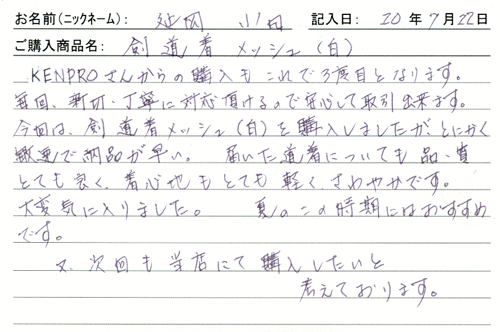 お名前(ニックネーム): 延岡 小田 記入日: 20年7月22日
ご購入商品名: 剣道着メッシュ(白)
KENPROさんからの購入もこれで3度目となります。
毎回、親切・丁寧に対応頂けるので安心して取引出来ます。
今回は、剣道着メッシュ(白)を購入しましたが、とにかく
敏速で納品が早い。 届いた道着についても品・質
とても良く、着心地もとても軽く、さわやかです。
大変気に入りました。 夏のこの時期にはおすすめ
です。
又、次回も当店にて購入したいと
考えております。